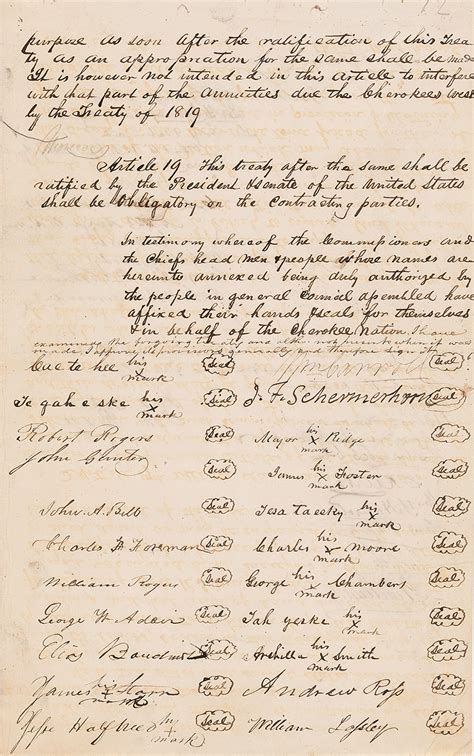 12
purpose as soon after the ratification of this Trea
ty as an appropriation for the same shall be made
It is however not intended in this Article to interfere
with that part of the annuities due the Cherokees West
by the Treaty of 1819
Article 19 This treaty after the same shall be
ratified by the President & Senate of the United States
shall be Obligatory on the Contracting parties.
In testimony whereof the Commissioners and
the Chiefs head men & people whose names are
hereunto annexed being duly authorized by
the people in general Council assembled have
affixed their hands & seals for themselves
& in behalf of the Cherokee Nation. I have
examined the foregoing treaty and altho not present when it was
made, I approve its provisions generally and therefore sign it
Wm Carroll Seal
Cue te hee his x mark Seal
J. F. Schermerhorn Seal
Te gah e ske his x mark Seal
Robert Rogers Seal
Major his x mark Ridge Seal
John Gunter Seal
James his x mark Foster Seal
John A. Bell Seal
Tesa taesky his x mark Seal
Charles F Foreman Seal
Charles his x mark Moore Seal
William Rogers Seal
George his x mark Chambers Seal
George W Adair Seal
Tah yeske his x mark Seal
Elias Boudinot Seal
Archilla his x mark Smith Seal
James his x mark Starr Seal
Andrew Ross Seal
Jesse Halfbreed his x mark Seal
William Lassley Seal